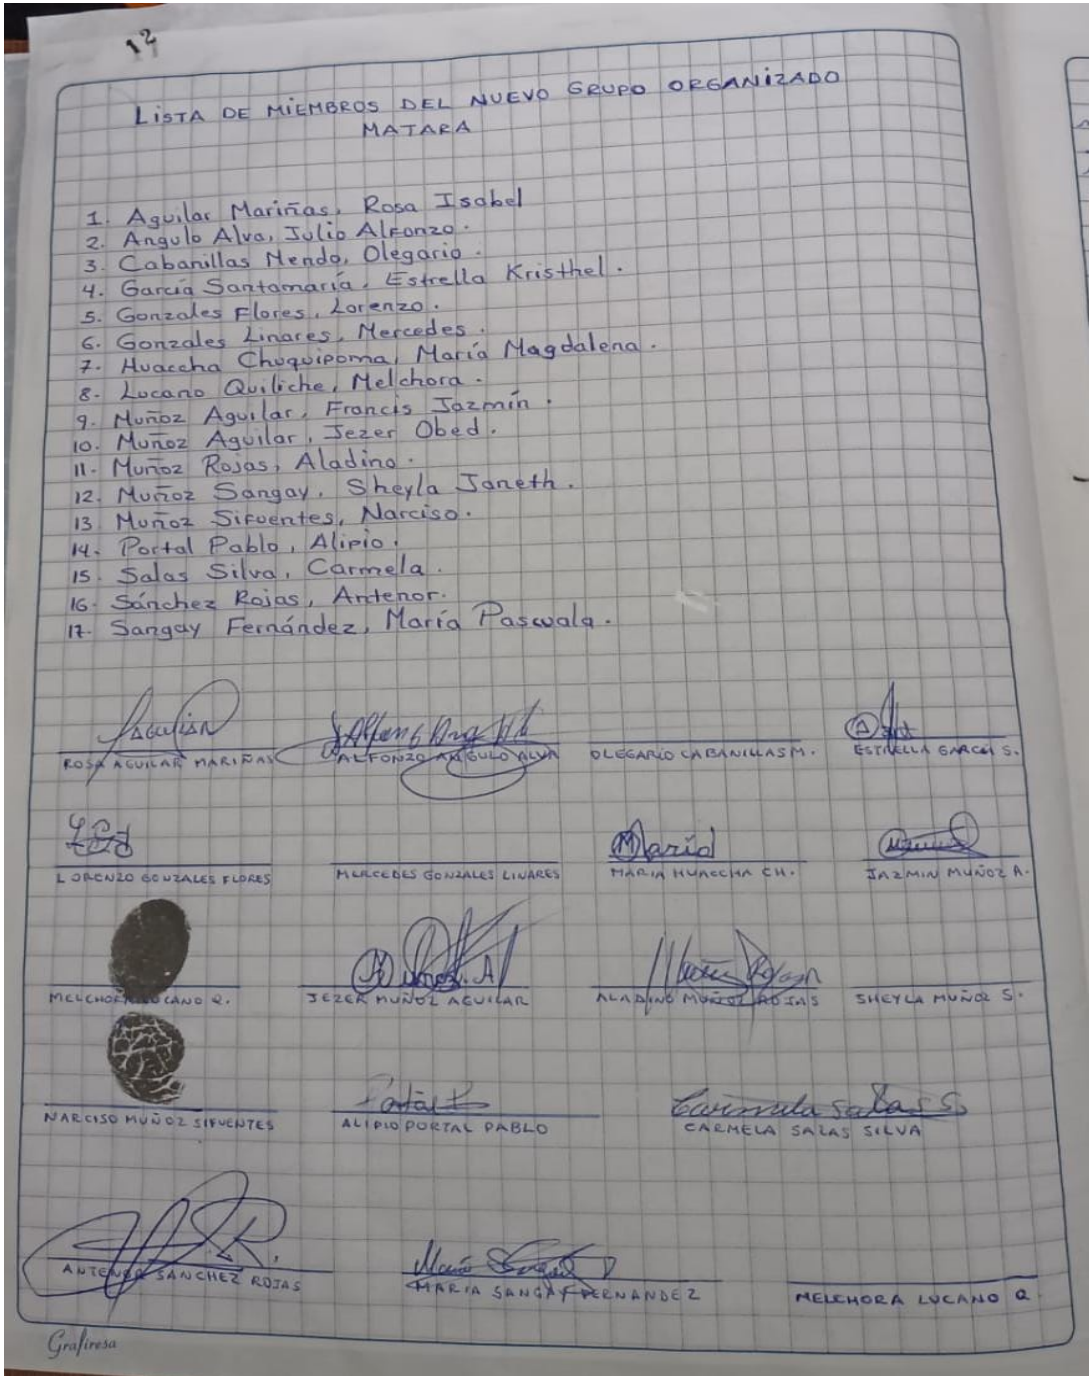 12
LISTA DE MIEMBROS DEL NUEVO GRUPO ORGANIZADO
MATARA
1. Aguilar Mariñas, Rosa Isabel
2. Angulo Alva, Julio Alfonzo.
3. Cabanillas Mendo, Olegario.
4. García Santamaría, Estrella Kristhel.
5. Gonzales Flores, Lorenzo.
6. Gonzales Linares, Mercedes.
7. Huaccha Chuquipoma, María Magdalena.
8. Lucano Quiliche, Melchora.
9. Muñoz Aguilar, Francis Jazmín.
10. Muñoz Aguilar, Jezer Obed.
11. Muñoz Rojas, Aladino.
12. Muñoz Sangay, Sheyla Janeth.
13 Muñoz Sifuentes, Narciso.
14. Portal Pablo, Alipio.
15. Salas Silva, Carmela.
16. Sánchez Rojas, Antenor.
17. Sangay Fernández, María Pascuala.
AGUILAR
ROSA AGUILAR MARIÑAS ALFONZO ANGULO ALVA OLEGARIO CABANILLAS M. ESTRELLA GARCÍA S.
María
LORENZO GONZALES FLORES MERCEDES GONZALES LINARES MARIA HUACCHA CH. JAZMIN MUÑOZ A.
Muñoz. A
MELCHORA LUCANO Q. JEZER MUÑOZ AGUILAR ALADINO MUÑOZ ROJAS SHEYLA MUÑOZ S.
Portal P Carmela Salas S.
NARCISO MUÑOZ SIFUENTES ALIPIO PORTAL PABLO CARMELA SALAS SILVA
S.R.
María Sangay
ANTENOR SANCHEZ ROJAS MARIA SANGAY FERNANDEZ MELCHORA LUCANO Q.
Grafiresa